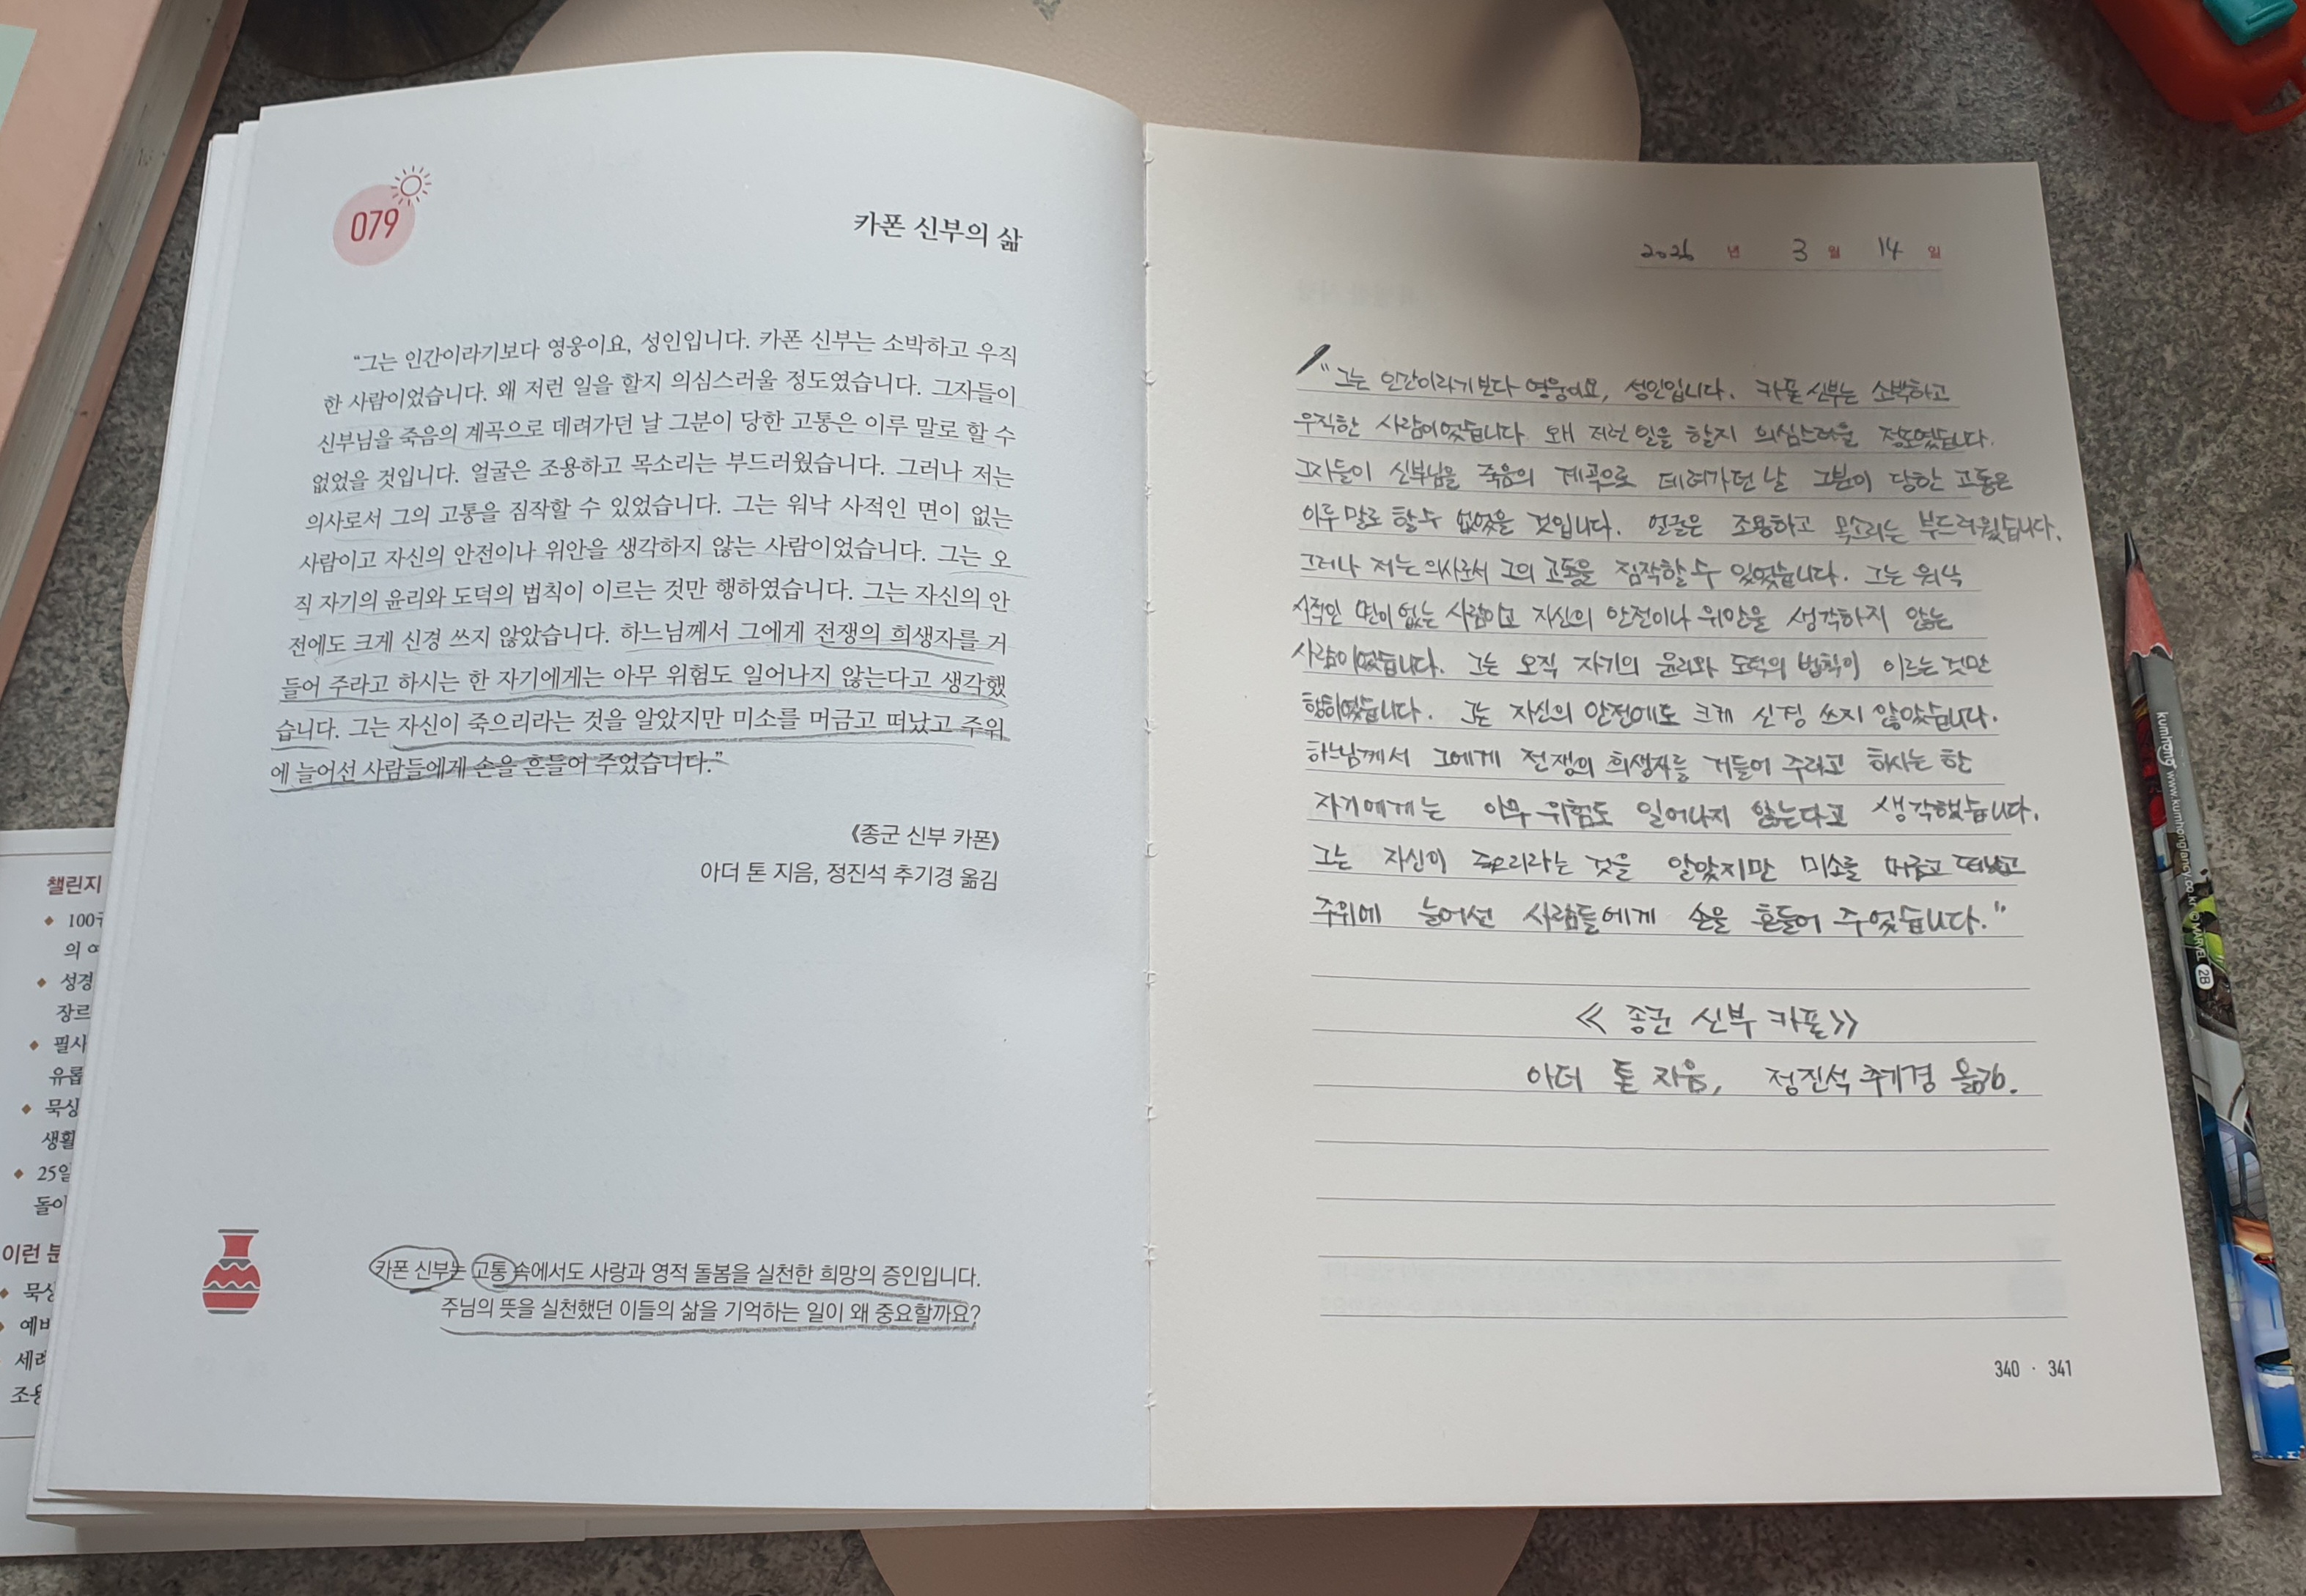 079
카폰 신부의 삶
“그는 인간이라기보다 영웅이요, 성인입니다. 카폰 신부는 소박하고 우직
한 사람이었습니다. 왜 저런 일을 할지 의심스러울 정도였습니다. 그자들이
신부님을 죽음의 계곡으로 데려가던 날 그분이 당한 고통은 이루 말로 할 수
없었을 것입니다. 얼굴은 조용하고 목소리는 부드러웠습니다. 그러나 저는
의사로서 그의 고통을 짐작할 수 있었습니다. 그는 워낙 사적인 면이 없는
사람이고 자신의 안전이나 위안을 생각하지 않는 사람이었습니다. 그는 오
직 자기의 윤리와 도덕의 법칙이 이르는 것만 행하였습니다. 그는 자신의 안
전에도 크게 신경 쓰지 않았습니다. 하느님께서 그에게 전쟁의 희생자를 거
들어 주라고 하시는 한 자기에게는 아무 위험도 일어나지 않는다고 생각했
습니다. 그는 자신이 죽으리라는 것을 알았지만 미소를 머금고 떠났고 주위
에 늘어선 사람들에게 손을 흔들어 주었습니다.”
《종군 신부 카폰》
아더 톤 지음, 정진석 추기경 옮김
카폰 신부는 고통 속에서도 사랑과 영적 돌봄을 실천한 희망의 증인입니다.
주님의 뜻을 실천했던 이들의 삶을 기억하는 일이 왜 중요할까요?
2026 년 3 월 14 일
“그는 인간이라기보다 영웅이요, 성인입니다. 카폰 신부는 소박하고
우직한 사람이었습니다. 왜 저런 일을 할지 의심스러울 정도였습니다.
그자들이 신부님을 죽음의 계곡으로 데려가던 날 그분이 당한 고통은
이루 말로 할 수 없었을 것입니다. 얼굴은 조용하고 목소리는 부드러웠습니다.
그러나 저는 의사로서 그의 고통을 짐작할 수 있었습니다. 그는 워낙
사적인 면이 없는 사람이고 자신의 안전이나 위안을 생각하지 않는
사람이었습니다. 그는 오직 자기의 윤리와 도덕의 법칙이 이르는 것만
행하였습니다. 그는 자신의 안전에도 크게 신경 쓰지 않았습니다.
하느님께서 그에게 전쟁의 희생자를 거들어 주라고 하시는 한
자기에게는 아무 위험도 일어나지 않는다고 생각했습니다.
그는 자신이 죽으리라는 것을 알았지만 미소를 머금고 떠났고
주위에 늘어선 사람들에게 손을 흔들어 주었습니다.”
《종군 신부 카폰》
아더 톤 지음, 정진석 추기경 옮김.
340 · 341
챌린지
의
성경
장르
필사
유럽
묵상
생활
25일
이런 분
kumhong www.kumhongfancy.co.kr
©MARVEL 2B